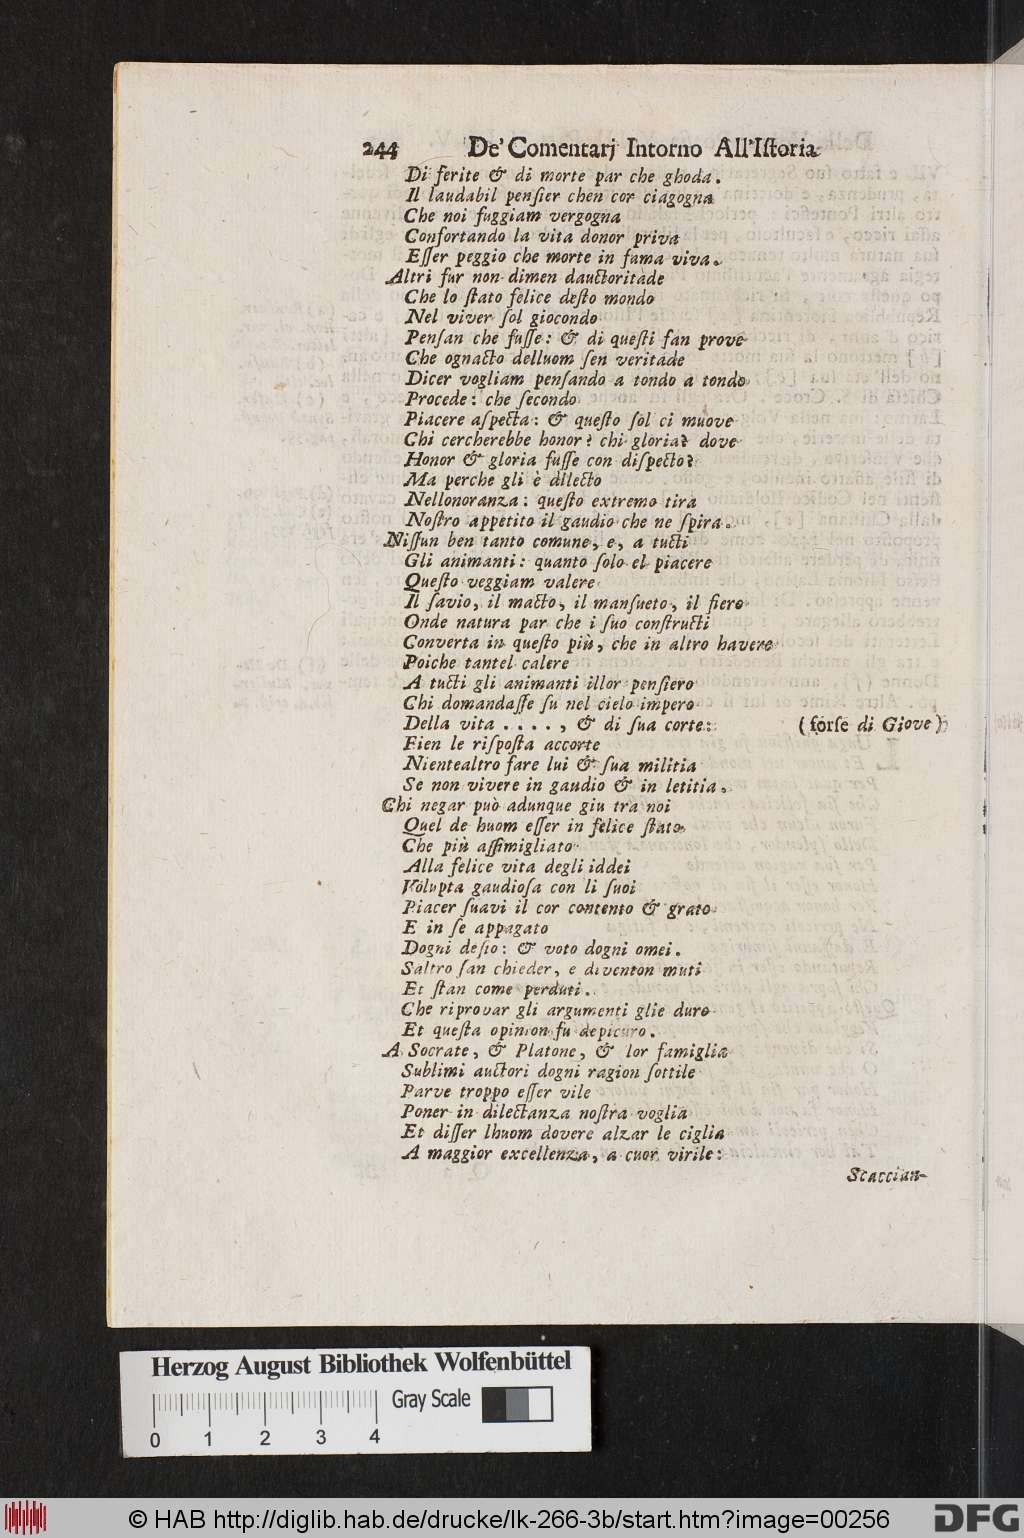 244 De' Comentarj Intorno All'Iſtoria
Di ferite & di morte par che ghoda.
Il laudabil penſier chen cor ciagogna
Che noi fuggiam vergogna
Confortando la vita donor priva
Eſſer peggio che morte in fama viva.
Altri fur non dimen dauctoritade
Che lo ſtato felice deſto mondo
Nel viver ſol giocondo
Penſan che fuſſe: & di queſti fan prove
Che ognacto delluom ſen veritade
Dicer vogliam penſando a tondo a tondo
Procede: che ſecondo
Piacere aſpecta: & queſto ſol ci muove
Chi cercherebbe honor? chi gloria? dove
Honor & gloria fuſſe con diſpecto?
Ma perche gli è dilecto
Nellonoranza: queſto extremo tira
Noſtro appetito il gaudio che ne ſpira.
Niſſun ben tanto comune, e, a tucti
Gli animanti: quanto ſolo el piacere
Queſto veggiam valere
Il ſavio, il macto, il manſueto, il fiero
Onde natura par che i ſuo conſtructi
Converta in queſto più, che in altro havere
Poiche tantel calere
A tucti gli animanti illor penſiero
Chi domandaſſe ſu nel cielo impero
Della vita . . . . , & di ſua corte: (forſe di Giove)
Fien le riſpoſta accorte
Nientealtro fare lui & ſua militia
Se non vivere in gaudio & in letitia.
Chi negar può adunque giu tra noi
Quel de huom eſſer in felice ſtato
Che più aſſimigliato
Alla felice vita degli iddei
Volupta gaudioſa con li ſuoi
Piacer ſuavi il cor contento & grato
E in ſe appagato
Dogni deſio: & voto dogni omei.
Saltro ſan chieder, e diventon muti
Et ſtan come perduti.
Che riprovar gli argumenti glie duro
Et queſta opinion fu depicuro.
A Socrate, & Platone, & lor famiglia
Sublimi auctori dogni ragion ſottile
Parve troppo eſſer vile
Poner in dilectanza noſtra voglia
Et diſſer lhuom dovere alzar le ciglia
A maggior excellenza, a cuor virile:
Scaccian-
Herzog August Bibliothek Wolfenbüttel
Gray Scale
0 1 2 3 4
© HAB http://diglib.hab.de/drucke/lk-266-3b/start.htm?image=00256
DFG